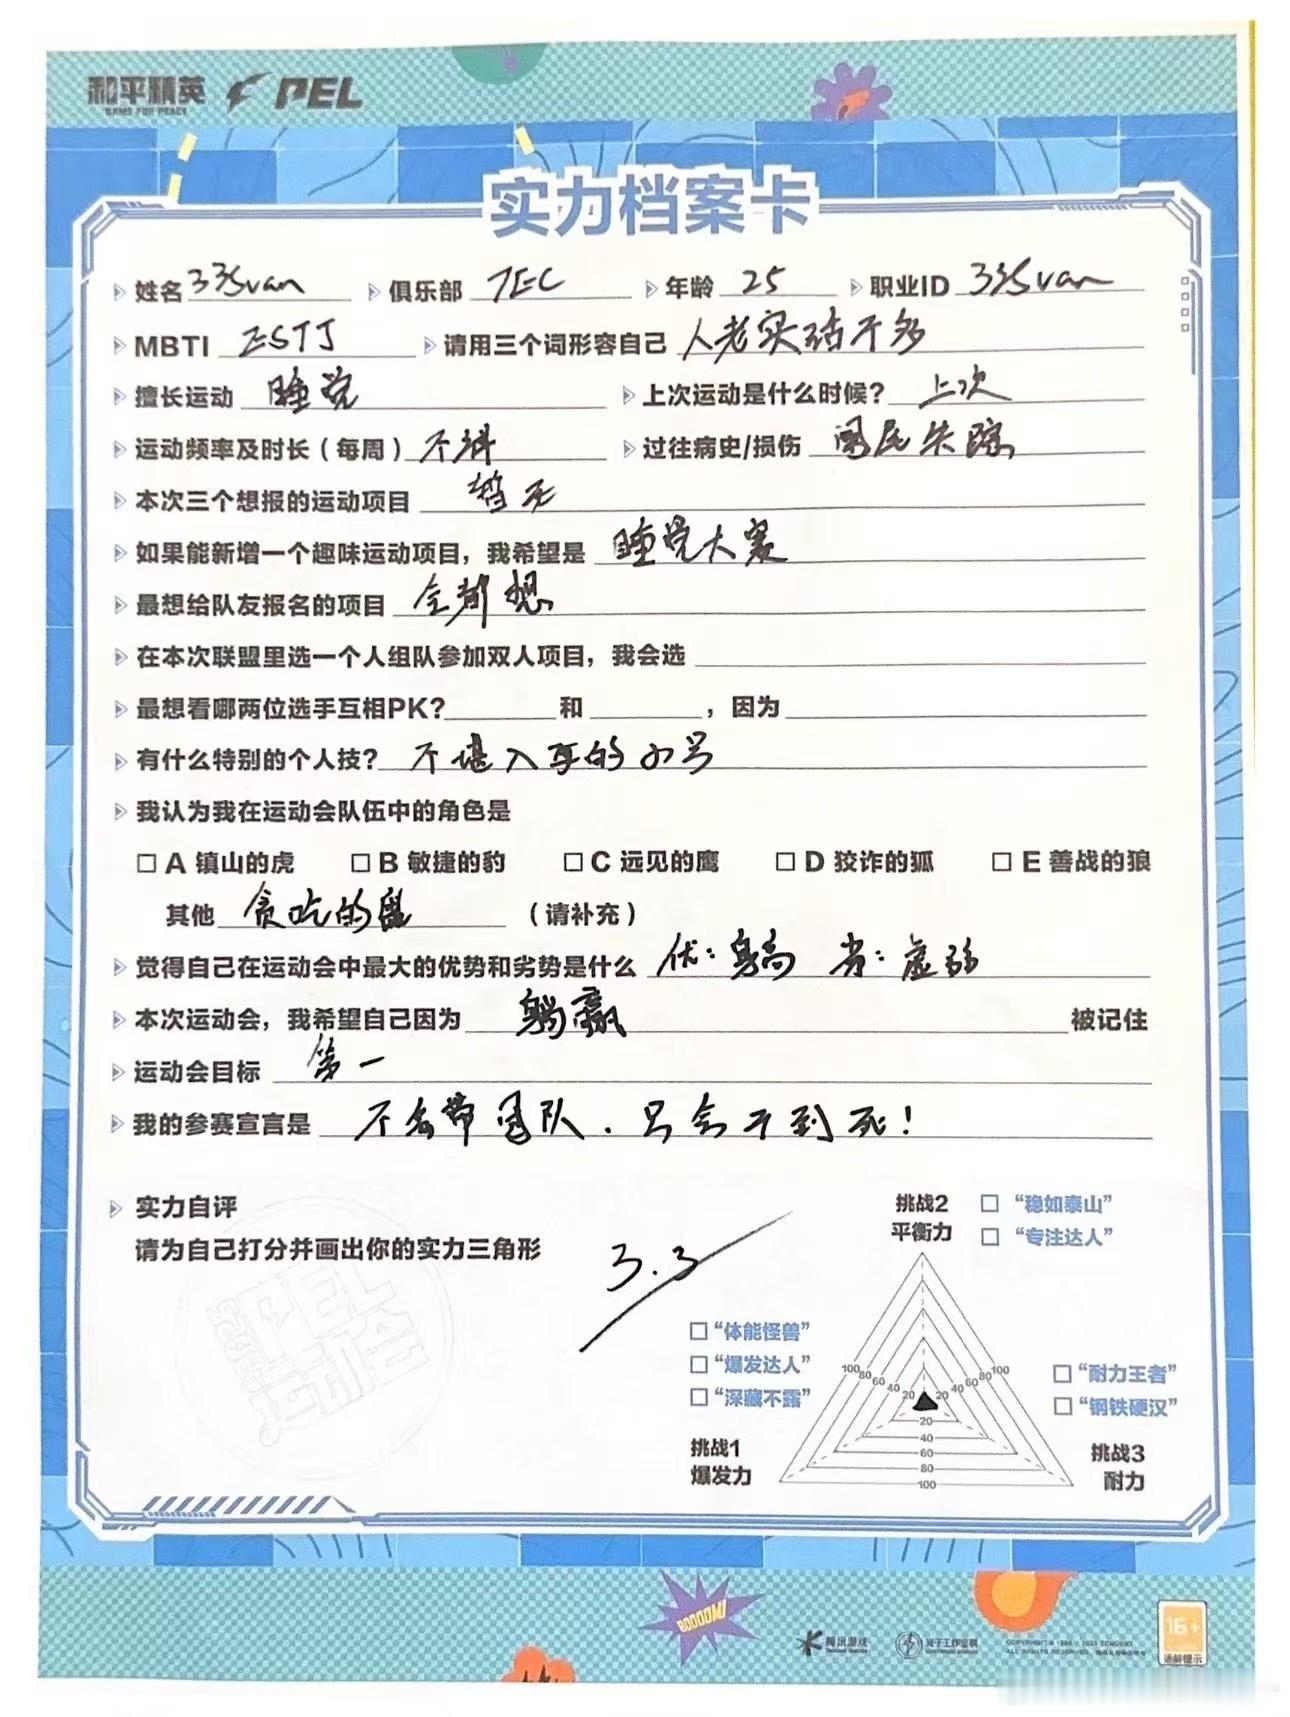 和平精英 PEL
GAME FOR PEACE
实力档案卡
姓名 33Svan 俱乐部 TEC 年龄 25 职业ID 33Svan
MBTI ESTJ 请用三个词形容自己 人老实话不多
擅长运动 睡觉 上次运动是什么时候? 上次
运动频率及时长(每周) 不详 过往病史/损伤
本次三个想报的运动项目 暂无
如果能新增一个趣味运动项目,我希望是 睡觉大赛
最想给队友报名的项目 全都想
在本次联盟里选一个人组队参加双人项目,我会选
最想看哪两位选手互相PK? 和 ,因为
有什么特别的个人技? 不堪入耳的小号
我认为我在运动会队伍中的角色是
□ A 镇山的虎 □ B 敏捷的豹 □ C 远见的鹰 □ D 狡诈的狐 □ E 善战的狼
其他 贪吃的 (请补充)
觉得自己在运动会中最大的优势和劣势是什么 优: 劣: 虚弱
本次运动会,我希望自己因为 躺赢 被记住
运动会目标 第一
我的参赛宣言是 不会带团队,只会干到死!
实力自评
请为自己打分并画出你的实力三角形
3.3
挑战2
平衡力
□ “稳如泰山”
□ “专注达人”
□ “体能怪兽”
□ “爆发达人”
□ “深藏不露”
100 80 60 40 20 20 40 60 80 100
20
40
60
80
100
□ “耐力王者”
□ “钢铁硬汉”
挑战1
爆发力
挑战3
耐力
BOOOOM!
腾讯游戏
光子工作室群
16+
适龄提示